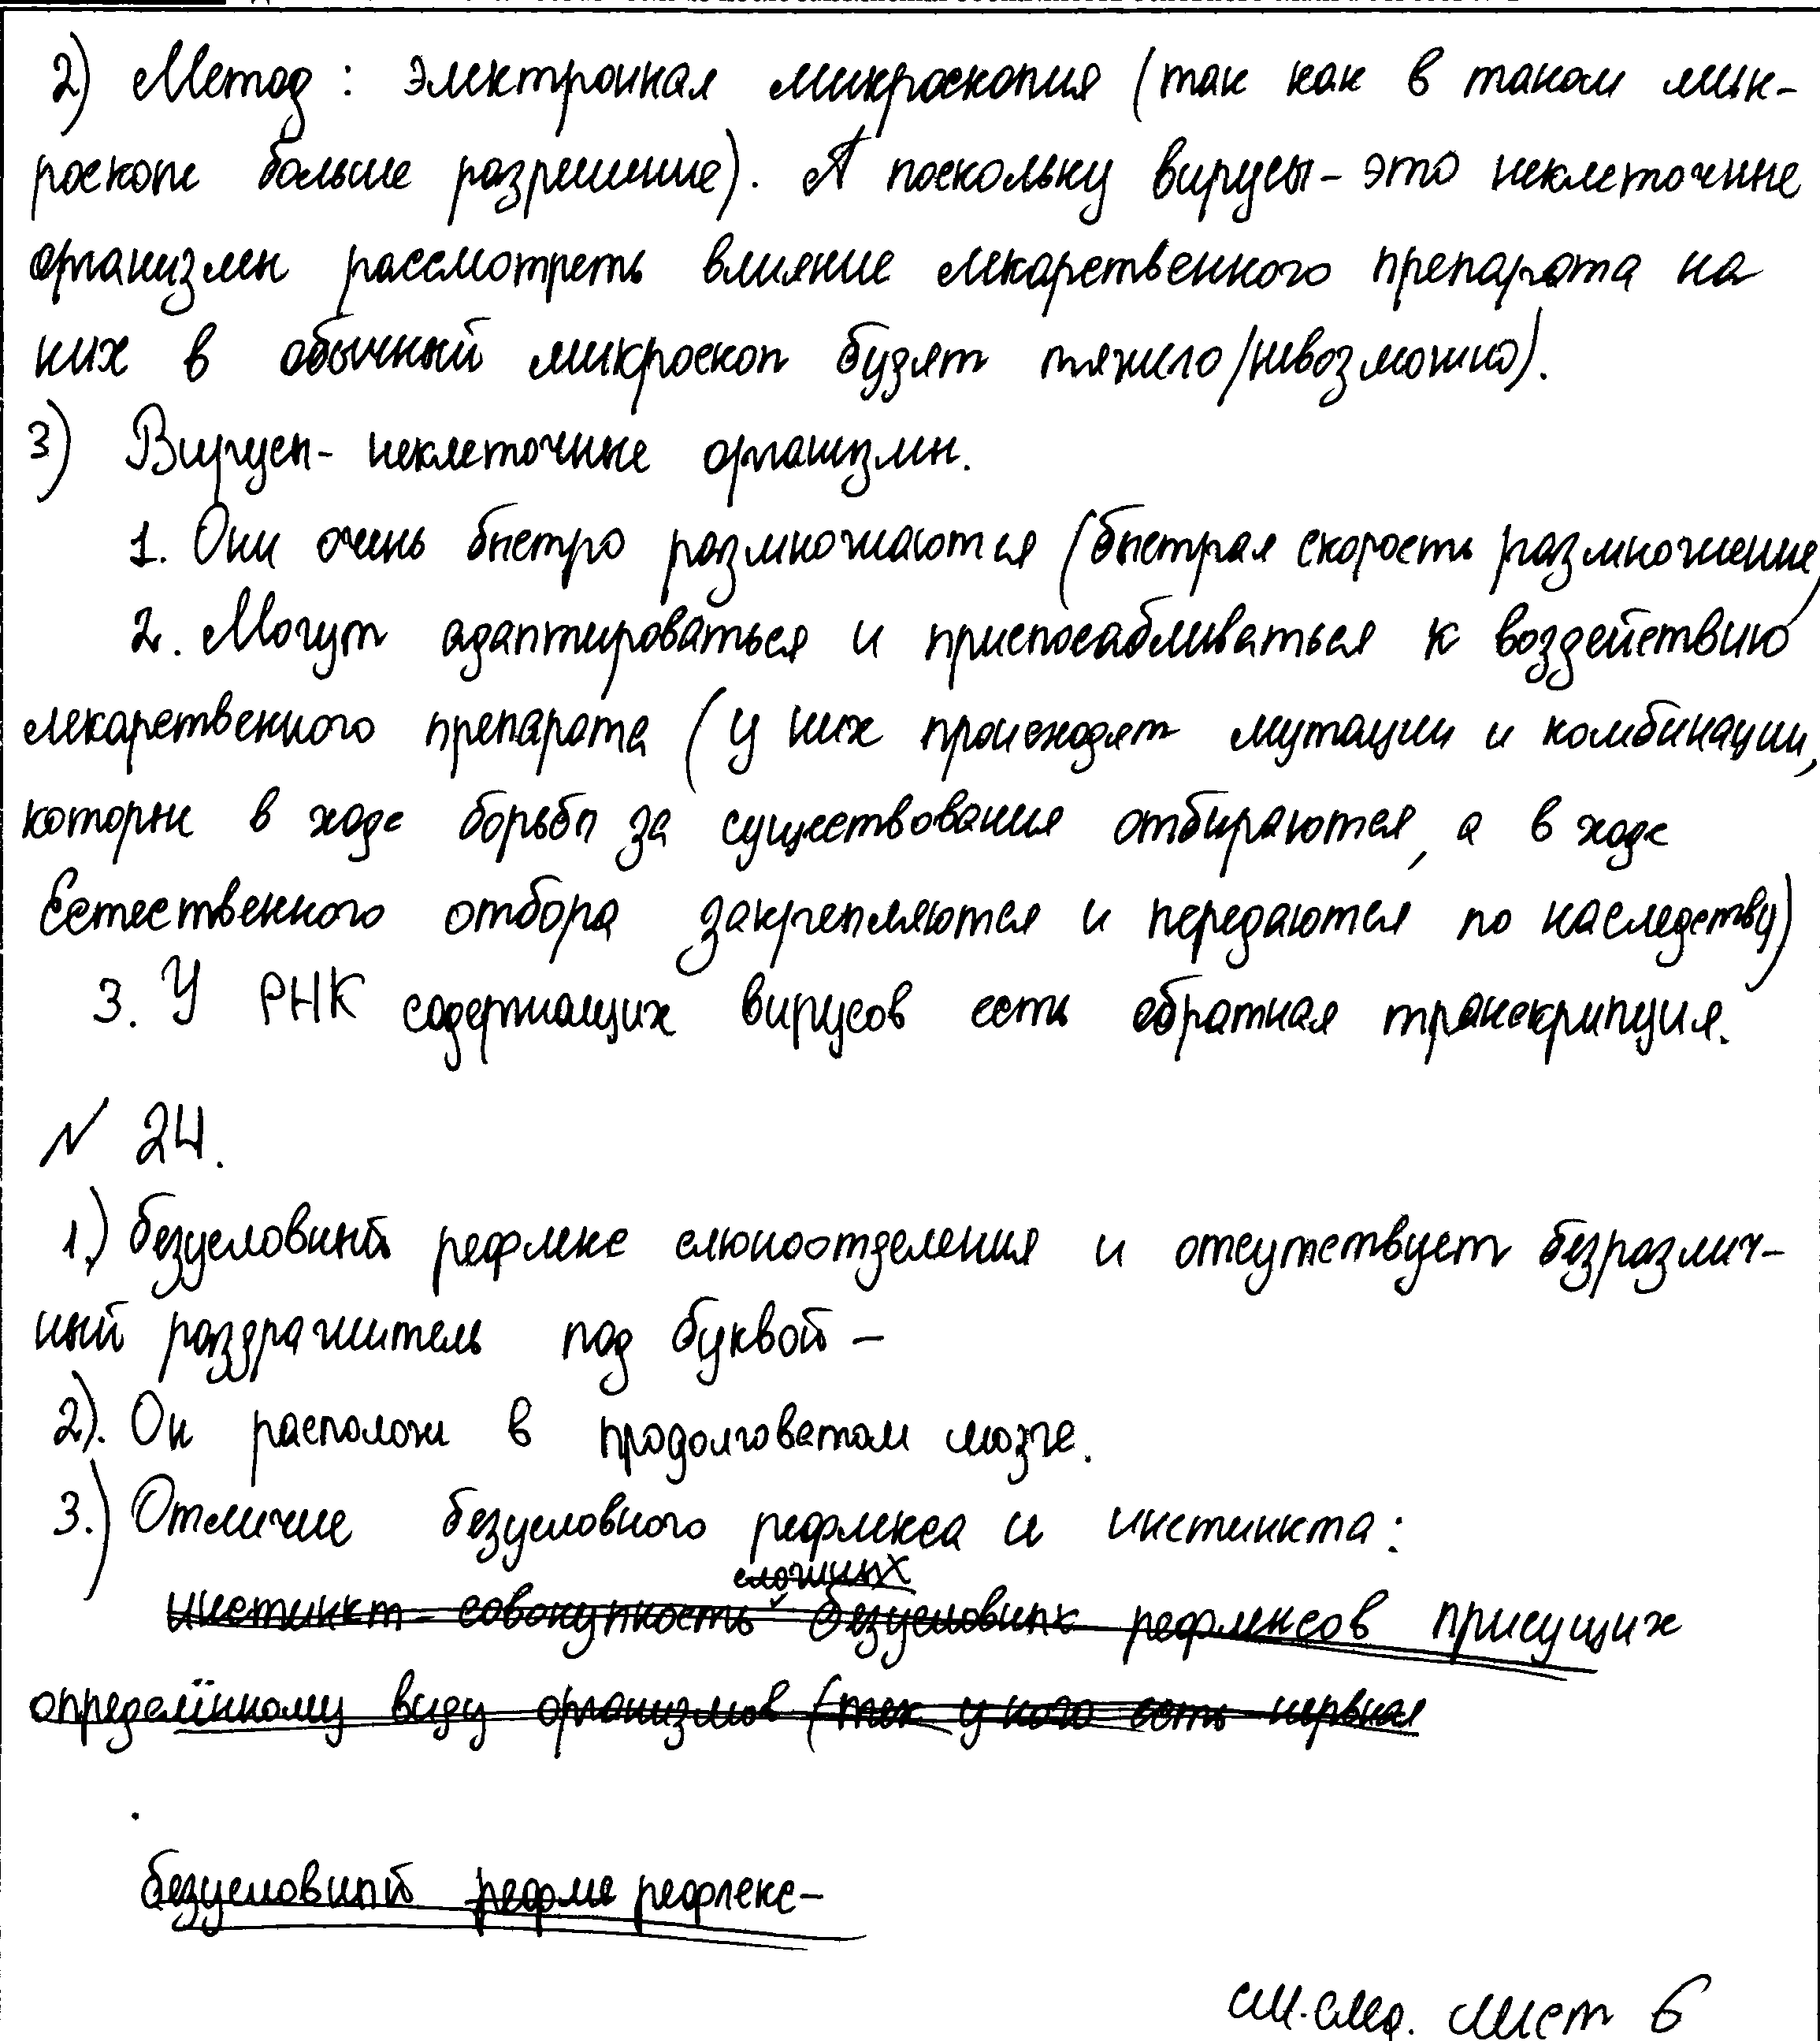 2) Метод: электронная микроскопия (так как в таком мик-
роскопе больше разрешение). А поскольку вирусы - это неклеточные
организмы рассмотреть влияние лекарственного препарата на
них в обычный микроскоп будет тяжело/невозможно).
3) Вирусы - неклеточные организмы.
1. Они очень быстро размножаются (быстрая скорость размножение)
2. Могут адаптироваться и приспосабливаться к воздействию
лекарственного препарата (у них происходят мутации и комбинации,
которые в ходе борьбы за существования отбираются, а в ходе
Естественного отбора закрепляются и передаются по наследству)
3. У РНК содержащих вирусов есть обратная транскрипция.
N 24.
1.) безусловный рефлекс слюноотделения и отсутствует безразлич-
ный раздражитель под буквой -
2). Он располож в продолговатом мозге.
3.) Отличие безусловного рефлекса и инстинкта:
сложных
инстинкт - совокупность безусловных рефлексов присущих
определённому виду организмов (тех у кого есть нервная
безусловный рефле рефлекс -
см. след. лист 6